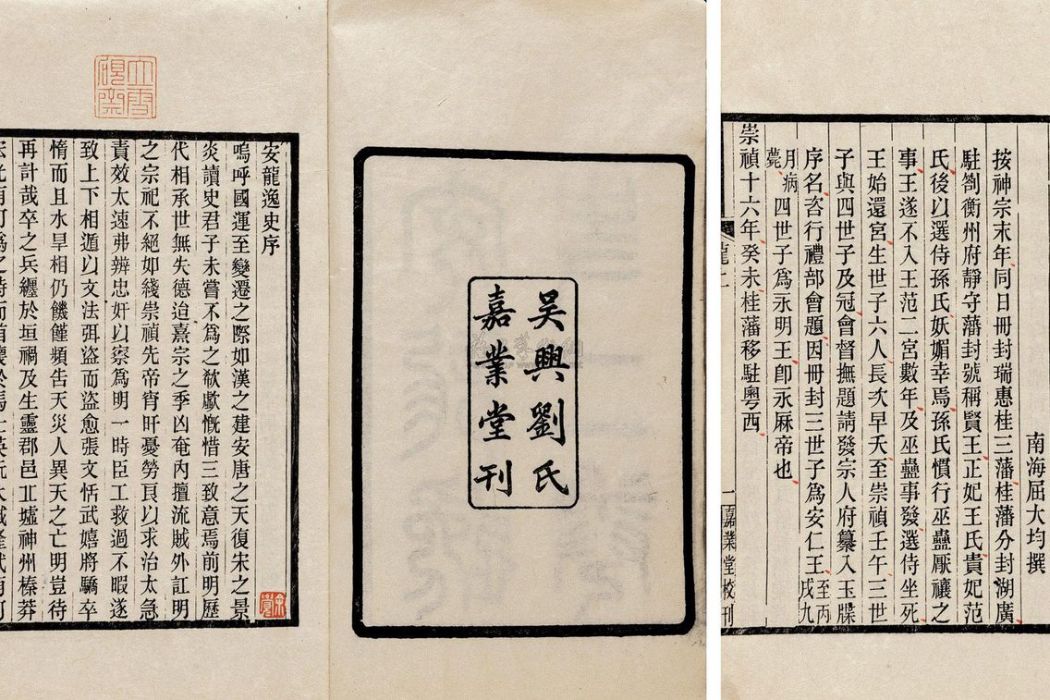 安龍逸史序
嗚呼國運至變遷之際如漢之建安唐之天復宋之景
炎讀史君子未嘗不爲之欷歔慨惜三致意焉前明歷
代相承世無失德迨熹宗之季凶奄內擅流賊外訌明
之宗祀不絕如綫崇禎先帝宵旰憂勞良以求治太急
責效太速弗辨忠奸以察爲明一時臣工救過不暇遂
致上下相遁以文法弭盜而盜愈張文恬武嬉將驕卒
惰而且水旱相仍饑饉頻告天災人異天之亡明豈待
再計哉卒之兵纏於垣禍及生靈郡邑丘墟神州榛莽
吳興劉氏
嘉業堂刊
南海屈大均撰
按神宗末年同日冊封瑞惠桂三藩桂藩分封湖廣
駐劄衡州府靜守藩封號稱賢王正妃王氏貴妃范
氏後以選侍孫氏妖媚幸焉孫氏慣行巫蠱厭禳之
事王遂不入王范二宮數年及巫蠱事發選侍坐死
王始還宮生世子六人長次早夭至崇禎壬午三世
子與四世子及冠會督撫題請發宗人府纂入玉牒
序名咨行禮部會題因冊封三世子爲安仁王至丙戌九
月病薨四世子爲永明王卽永厤帝也
崇禎十六年癸未桂藩移駐粤西
一嘉業堂校刊